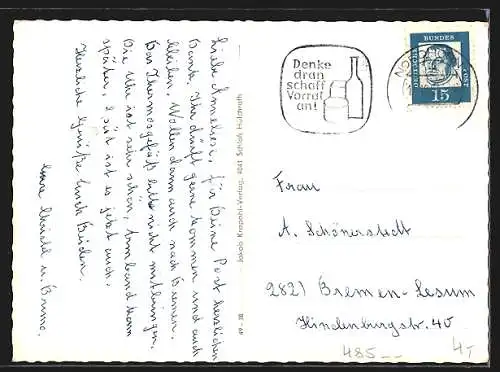 Liebe Anneliese, für Deine Post herzlichen
Dank. Ihr dürft gerne kommen und auch
bleiben. Wollen dann auch nach Bremen.
Das Thermosgefäß bitte nicht mitbringen.
Die Uhr ist sehr schön, Armband kann
später, süß ist es jetzt auch.
Herzliche Grüße Euch Beiden.
Eure u. Bruno.
Jakob Krapohl-Verlag, 4041 Schloß Hülchrath
69 - 38
Denke
dran
schaff
Vorrat
an!
DEUTSCHE BUNDESPOST
15
Frau
A. Schönerstedt
2821 Bremen-Lesum
Hindenburgstr. 40
485 --
4,-